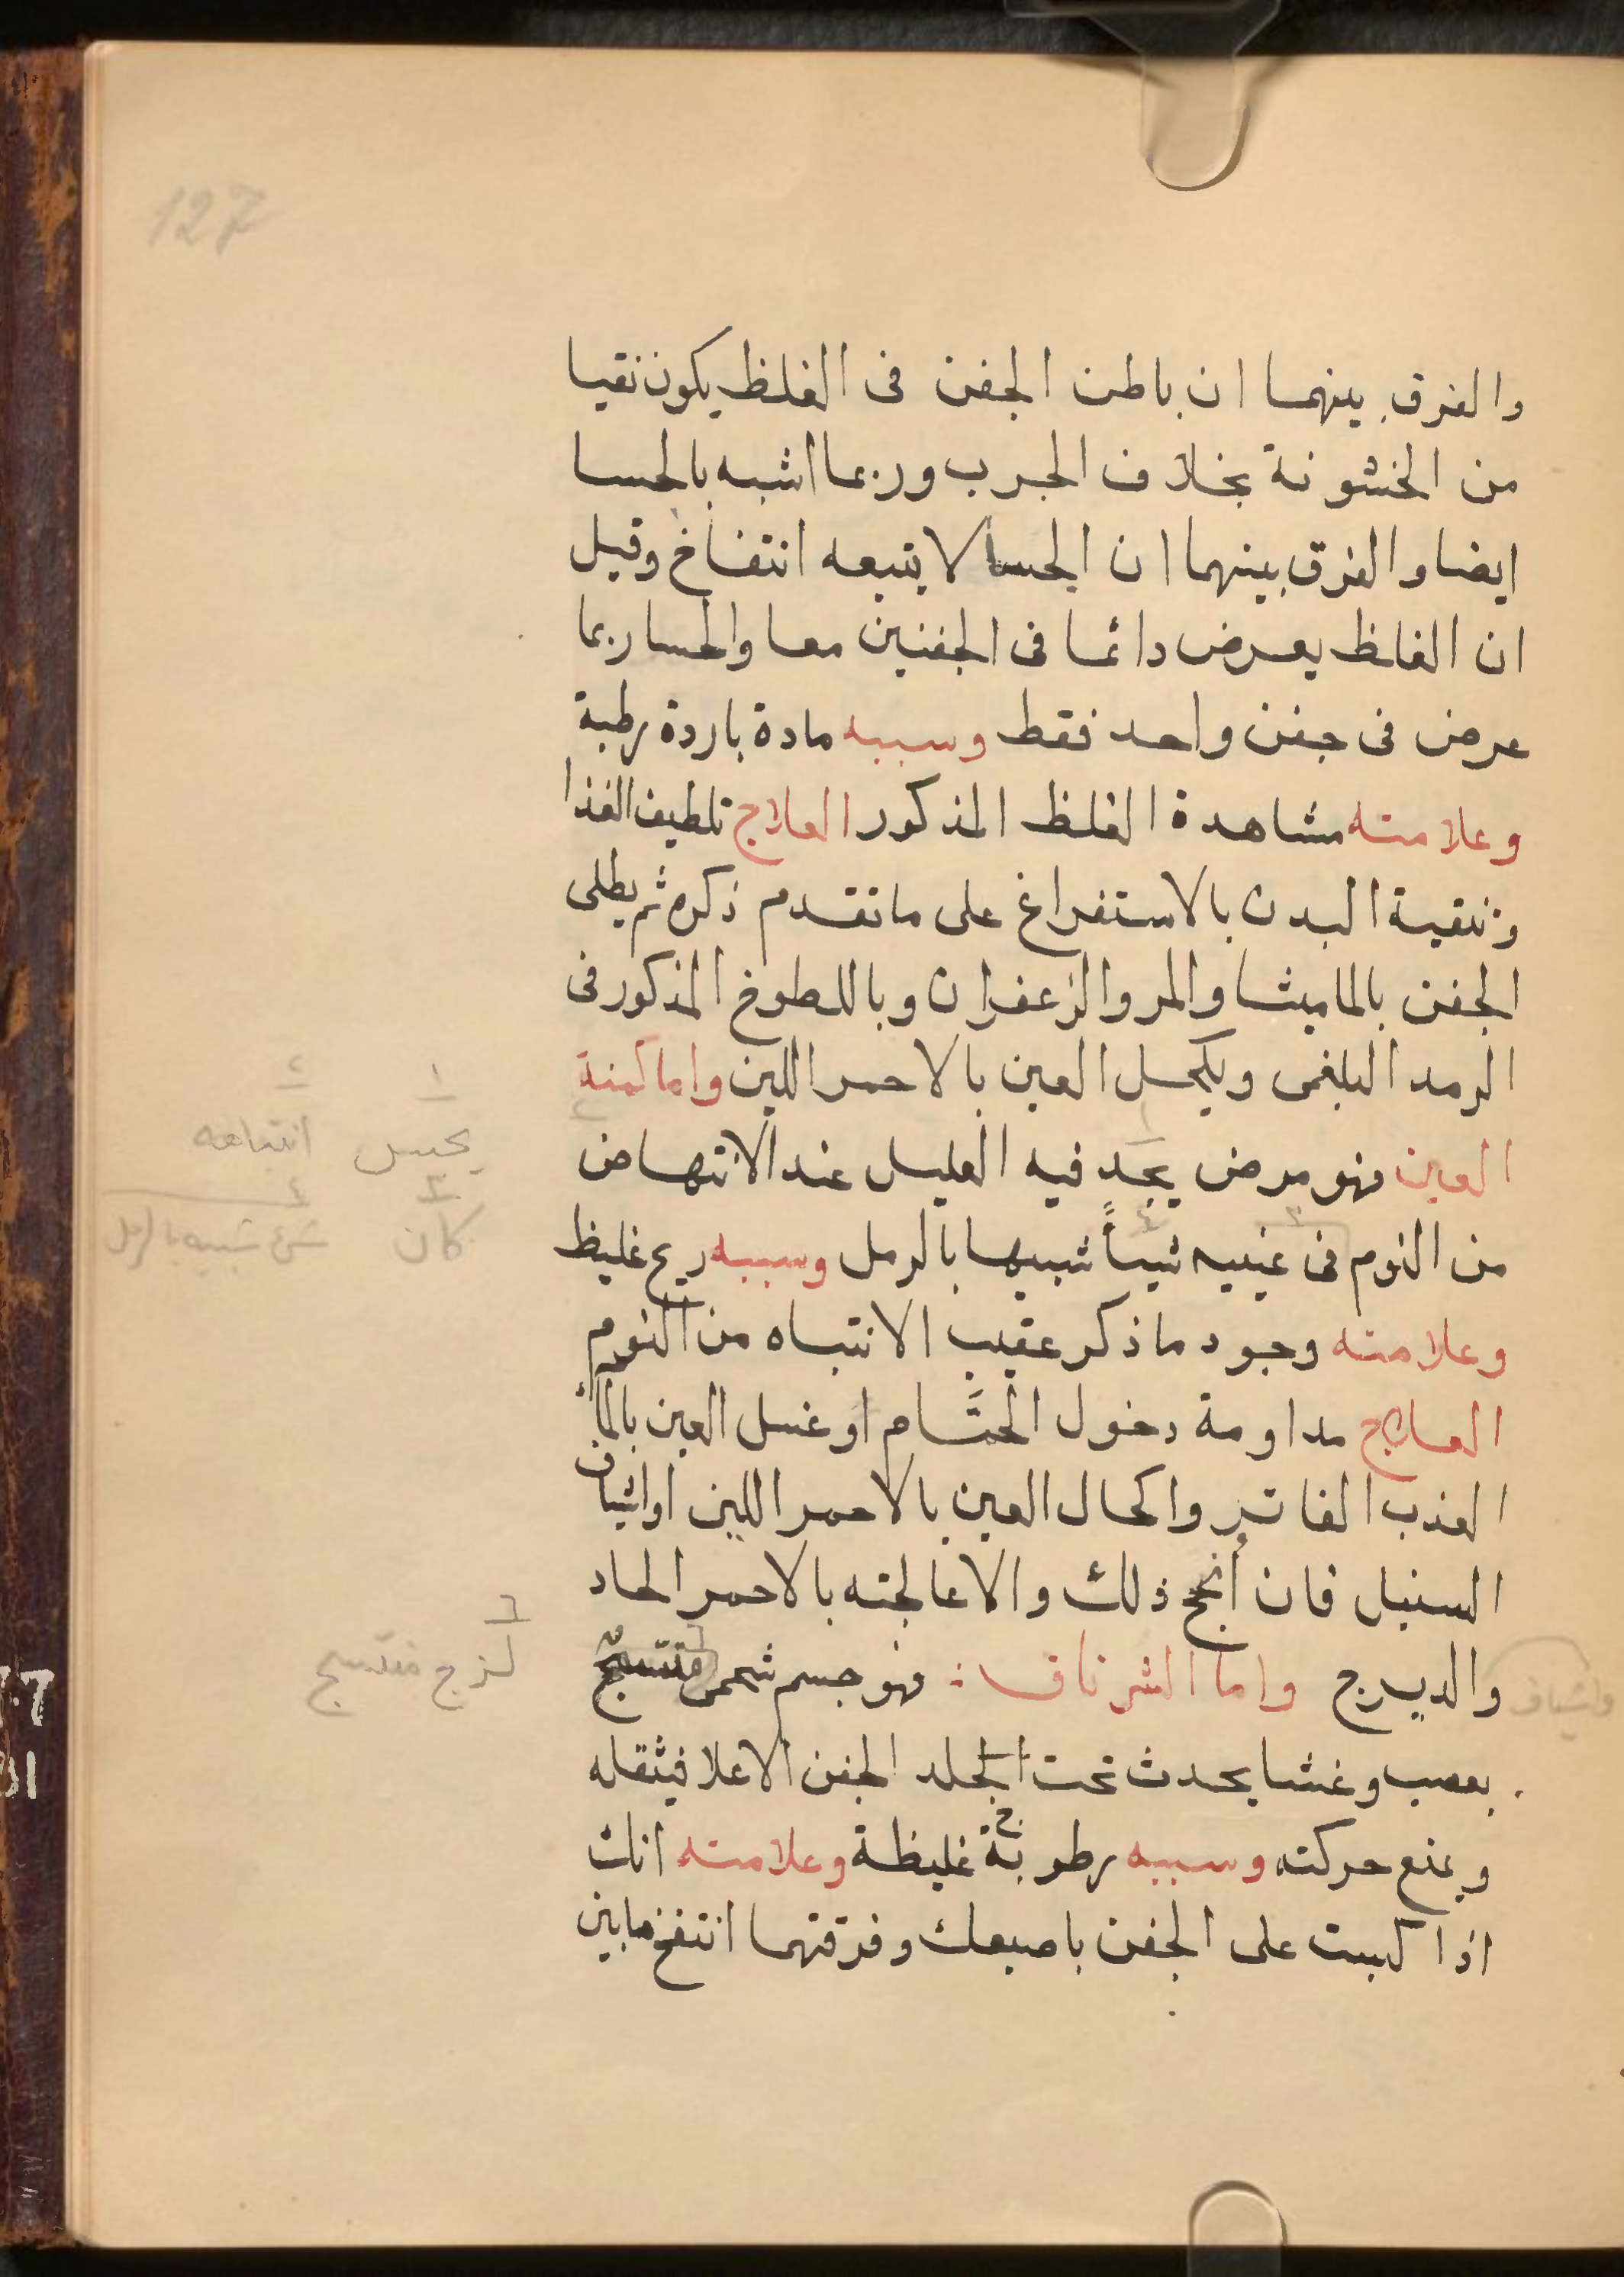 127
والفرق بينهما ان باطن الجفن فى الغلظ يكون نقيا
من الخشونة بخلاف الجرب وربما اشبه بالجسا
ايضا والفرق بينهما ان الجسا لا يتبعه انتفاخ وقيل
ان الغلظ يعرض دائما فى الجفنين معا والجسا ربما
عرض فى جفن واحد فقط وسببه مادة باردة رطبة
وعلامته مشاهدة الغلظ المذكور العلاج تلطيف الغذا
وتنقية البدن بالاستفراغ على ما تقدم ذكره ثم يطلى
الجفن بالماميثا والمر والزعفران وباللطوخ المذكور فى
الرمد البلغمى ويكحل العين بالاحمر اللين واما كمنة
العين فهو مرض يجد فيه العليل عند الانتهاض
من النوم فى عينيه شيأً شبيها بالرمل وسببه ريح غليظ
وعلامته وجود ما ذكر عقيب الانتباه من النوم
العلاج مداومة دخول الحمام او غسل العين بالمآء
العذب الفاتر واكحال العين بالاحمر اللين او اشياف
السنبل فان أنجح ذلك والا عالجته بالاحمر الحاد
والديزج واما الشرناق : فهو جسم شحمى منتسج
بعصب وغشا يحدث تحت الجلد الجفن الاعلا فيثقله
ويمنع حركته وسببه رطوبة غليظة وعلامته انك
اذا كبست على الجفن باصبعك وفرقتهما انتفخ ما بين
١ ٢
يحس انتباهه
٣ ٤
كان شئ شبيه بالرمل
٦
لزج منتسج
واشياف